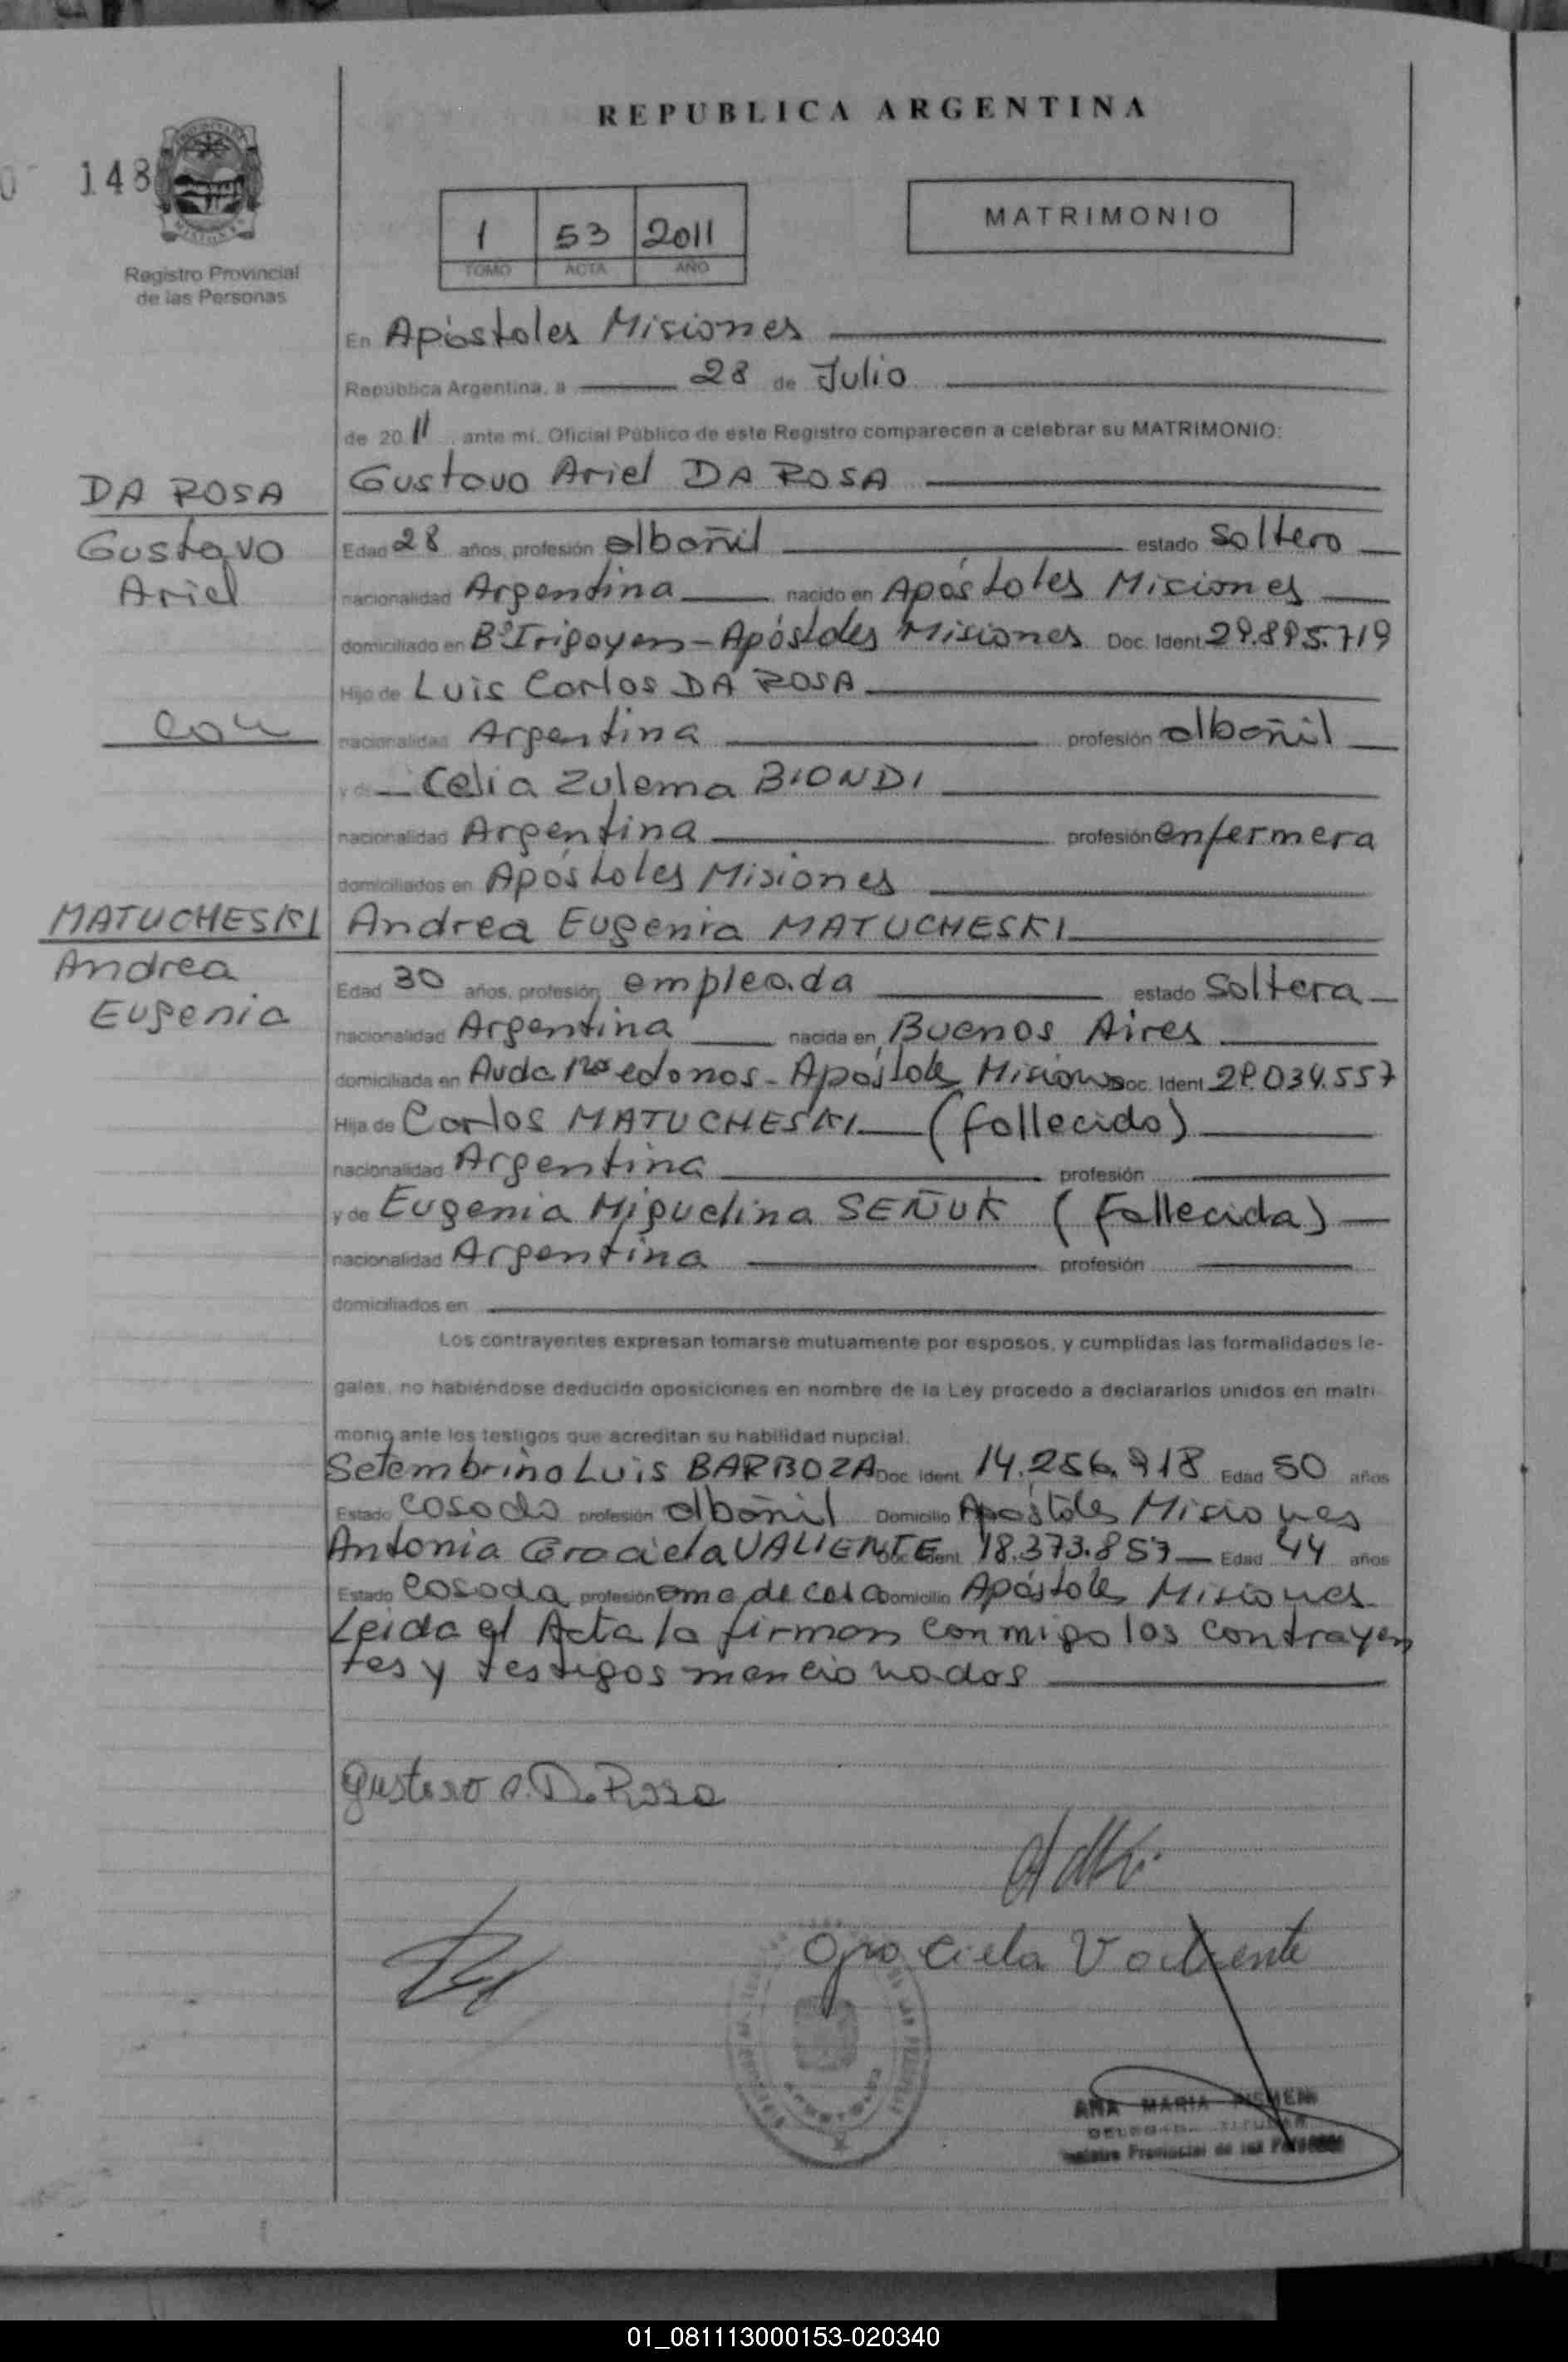 REPUBLICA ARGENTINA
148
Registro Provincial
de las Personas
1 53 2011
TOMO ACTA AÑO
MATRIMONIO
En Apóstoles Misiones
República Argentina, a 28 de Julio
de 2011, ante mí, Oficial Público de este Registro comparecen a celebrar su MATRIMONIO:
DA ROSA
Gustavo
Ariel
con
MATUCHESKI
Andrea
Eugenia
Gustavo Ariel DA ROSA
Edad 28 años, profesión albañil estado soltero
nacionalidad Argentina nacido en Apóstoles Misiones
domiciliado en Bº Irigoyen - Apóstoles Misiones Doc. Ident. 29.895.719
Hijo de Luis Carlos DA ROSA
nacionalidad Argentina profesión albañil
y de Celia Zulema BIONDI
nacionalidad Argentina profesión enfermera
domiciliados en Apóstoles Misiones
Andrea Eugenia MATUCHESKI
Edad 30 años, profesión empleada estado soltera
nacionalidad Argentina nacida en Buenos Aires
domiciliada en Avda - Apóstoles Misiones Doc. Ident.
Hija de Carlos MATUCHESKI (fallecido)
nacionalidad Argentina profesión
y de Eugenia Miguelina SEÑUK (Fallecida)
nacionalidad Argentina profesión
domiciliados en
Los contrayentes expresan tomarse mutuamente por esposos, y cumplidas las formalidades le-
gales, no habiéndose deducido oposiciones en nombre de la Ley procedo a declararlos unidos en matri
monio ante los testigos que acreditan su habilidad nupcial.
Setembrino Luis BARBOZA Doc. Ident. 14.256.918 Edad 50 años
Estado casado profesión albañil Domicilio Apóstoles Misiones
Antonia Graciela VALIENTE Doc. Ident. 18.373.857 Edad 44 años
Estado casada profesión ama de casa Domicilio Apóstoles Misiones
Leida el Acta la firman conmigo los contrayen
tes y testigos mencionados
Gustavo A. Da Rosa
Graciela Valiente
ANA MARIA
Registro Provincial de las Personas
01_081113000153-020340